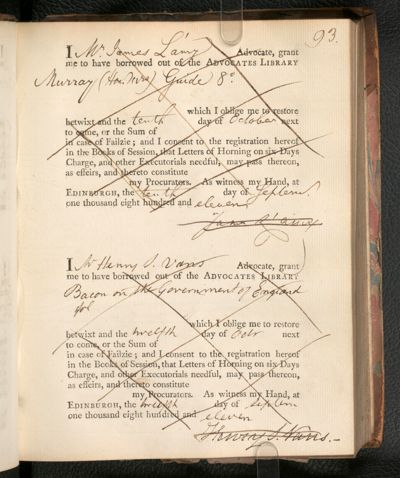 93.
I Mr. James L'Amy Advocate, grant
me to have borrowed out of the ADVOCATES LIBRARY
Murray (Hon. Mrs) Guide 8o.
which I oblige me to restore
betwixt and the tenth day of October next
to come, or the Sum of
in case of Failzie; and I consent to the registration hereof
in the Books of Session, that Letters of Horning on six Days
Charge, and other Executorials needful, may pass thereon,
as effeirs, and thereto constitute
my Procurators. As witness my Hand, at
EDINBURGH, the tenth day of Septem
one thousand eight hundred and eleven
I Mr Henry J. Vans Advocate, grant
me to have borrowed out of the ADVOCATES LIBRARY
Bacon on the Government of England
fol
which I oblige me to restore
betwixt and the twelfth day of Octr next
to come, or the Sum of
in case of Failzie; and I consent to the registration hereof
in the Books of Session, that Letters of Horning on six Days
Charge, and other Executorials needful, may pass thereon,
as effeirs, and thereto constitute
my Procurators. As witness my Hand, at
EDINBURGH, the twelfth day of Septem
one thousand eight hundred and eleven
Henry J. Vans.